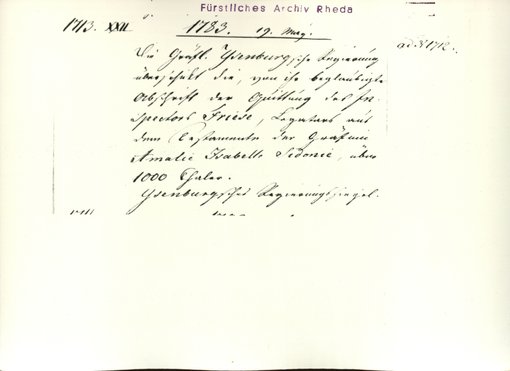 Fürstliches Archiv Rheda
1713. XXII 1783. 19. May. ad N 1712.
Die Gräfl. Ysenburgsche Regierung
überschickt die, von ihr beglaubigte
Abschrift der Quittung des In-
spectors Friese, Legatars aus
dem Testamente der Gräfinn
Amalie Isabelle Sidonie, über
1000 Thaler.
Ysenburgsches Regierungssiegel.